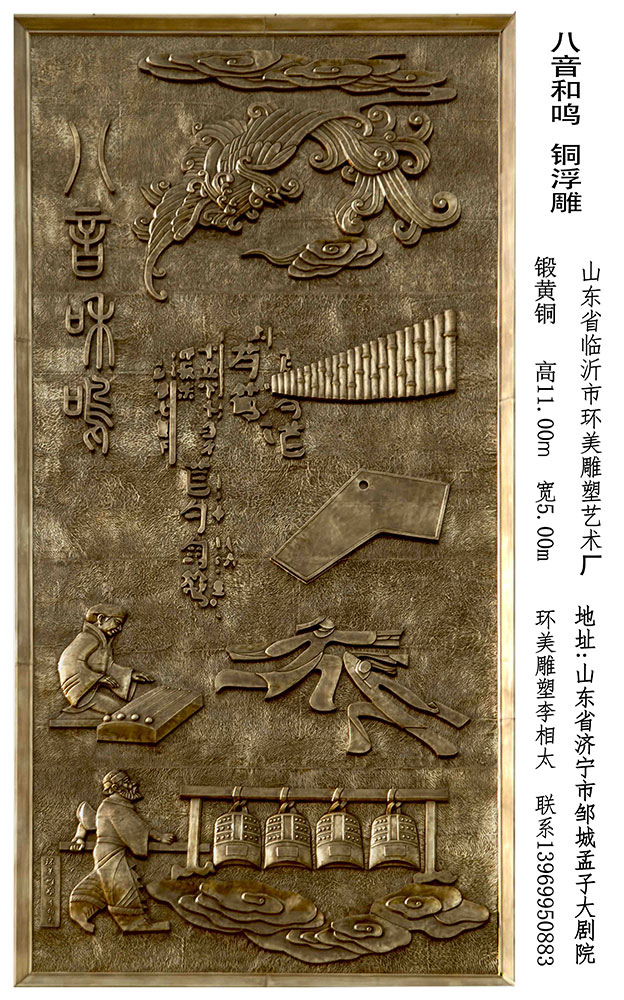 八音和鸣 铜浮雕
山东省临沂市环美雕塑艺术厂 地址:山东省济宁市邹城孟子大剧院
锻黄铜 高11.00m 宽5.00m 环美雕塑李相太 联系13969950883
八音和鸣